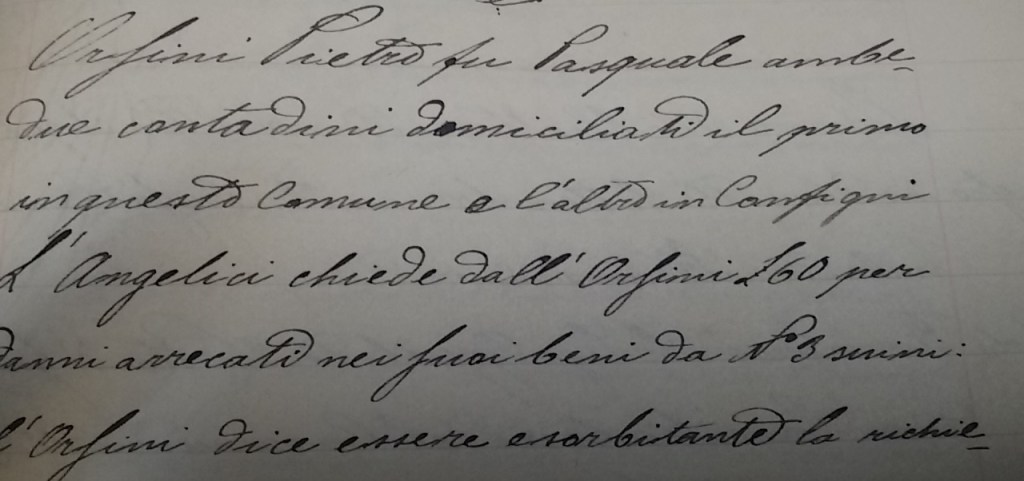 Orsini Pietro fu Pasquale ambe-
due contadini domiciliati il primo
in questo Comune e l'altro in Configni
L'Angelici chiede dall'Orsini £60 per
danni arrecati nei suoi beni da N° 3 suini:
l'Orsini dice essere esorbitante la richie-